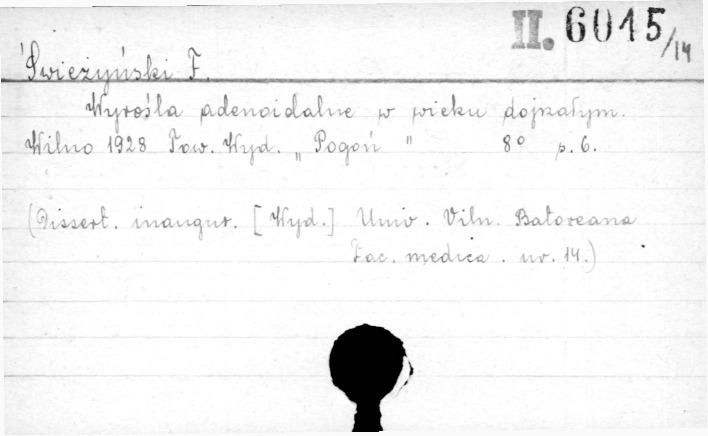 II. 6015/14
Świeżyński F.
Wyrośla adenoidalne w wieku dojrzałym.
Wilno 1928 Tow. Wyd. „Pogoń" 8° p. 6.
(Dissert. inaugur. [Wyd.] Univ. Viln. Batoreana
Fac. medica. nr. 14.)